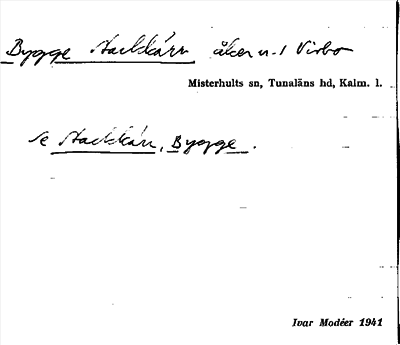 Bygge Stackkärr åker n. 1 Virbo
Misterhults sn, Tunaläns hd, Kalm. l.
se Stackkärr, Bygge.
Ivar Modéer 1941